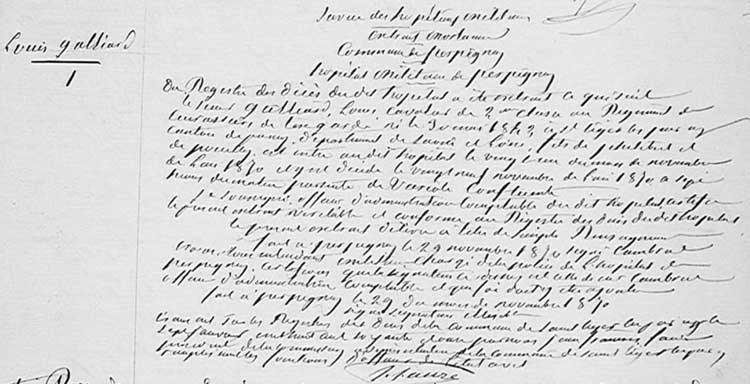 Louis Galliard
1
Service des hôpitaux militaires
extrait mortuaire
Commune de perpignan
hôpital militaire de perpignan
Du Registre des Décès du dit hôpital a été extrait ce qui suit
le sieur Galliard, Louis cavalier de 2me classe au Régiment de
cuirassiers de la garde né le 20 mars 1842 à st léger les paray
canton de paray, département de Saône et Loire, fils de et de
de est entré au dit hôpital le vingt du mois de novembre
de l'an 1870 et y est décédé le vingt neuf novembre de l'an 1870 à sept
heures du matin par suite de Variole Confluente
Le soussigné, officier d'administration comptable du dit hopital certifie
le présent extrait véritable et conforme au Registre des Décès du dit hopital
le présent délivré à titre de simple Renseignement
fait à perpignan le 29 novembre 1870 signé Cambrac
nous, sous intendant militaire chargé de la police de l'hopital de
perpignan, certifions que la signature ci dessus est celle de sieur Cambrac
officier d'administration comptable et que foi doit y être ajoutée
fait à perpignan le 29 du mois de novembre 1870
signé signature illisible
transcrit sur les Registres des Décès de la Commune de saint léger les paray le
par nous
président de la commission de la commune de saint léger les paray
remplissant les fonctions d'officier de l'état civil